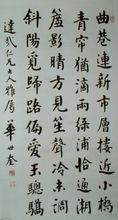 曲巷連新市層樓近小橋
青帘猶滴雨綠浦恰通潮
簾影晴方見笙聲冷未調
斜陽覓歸路俩愛玉驄驕
達武仁兄大人雅屬 華世奎